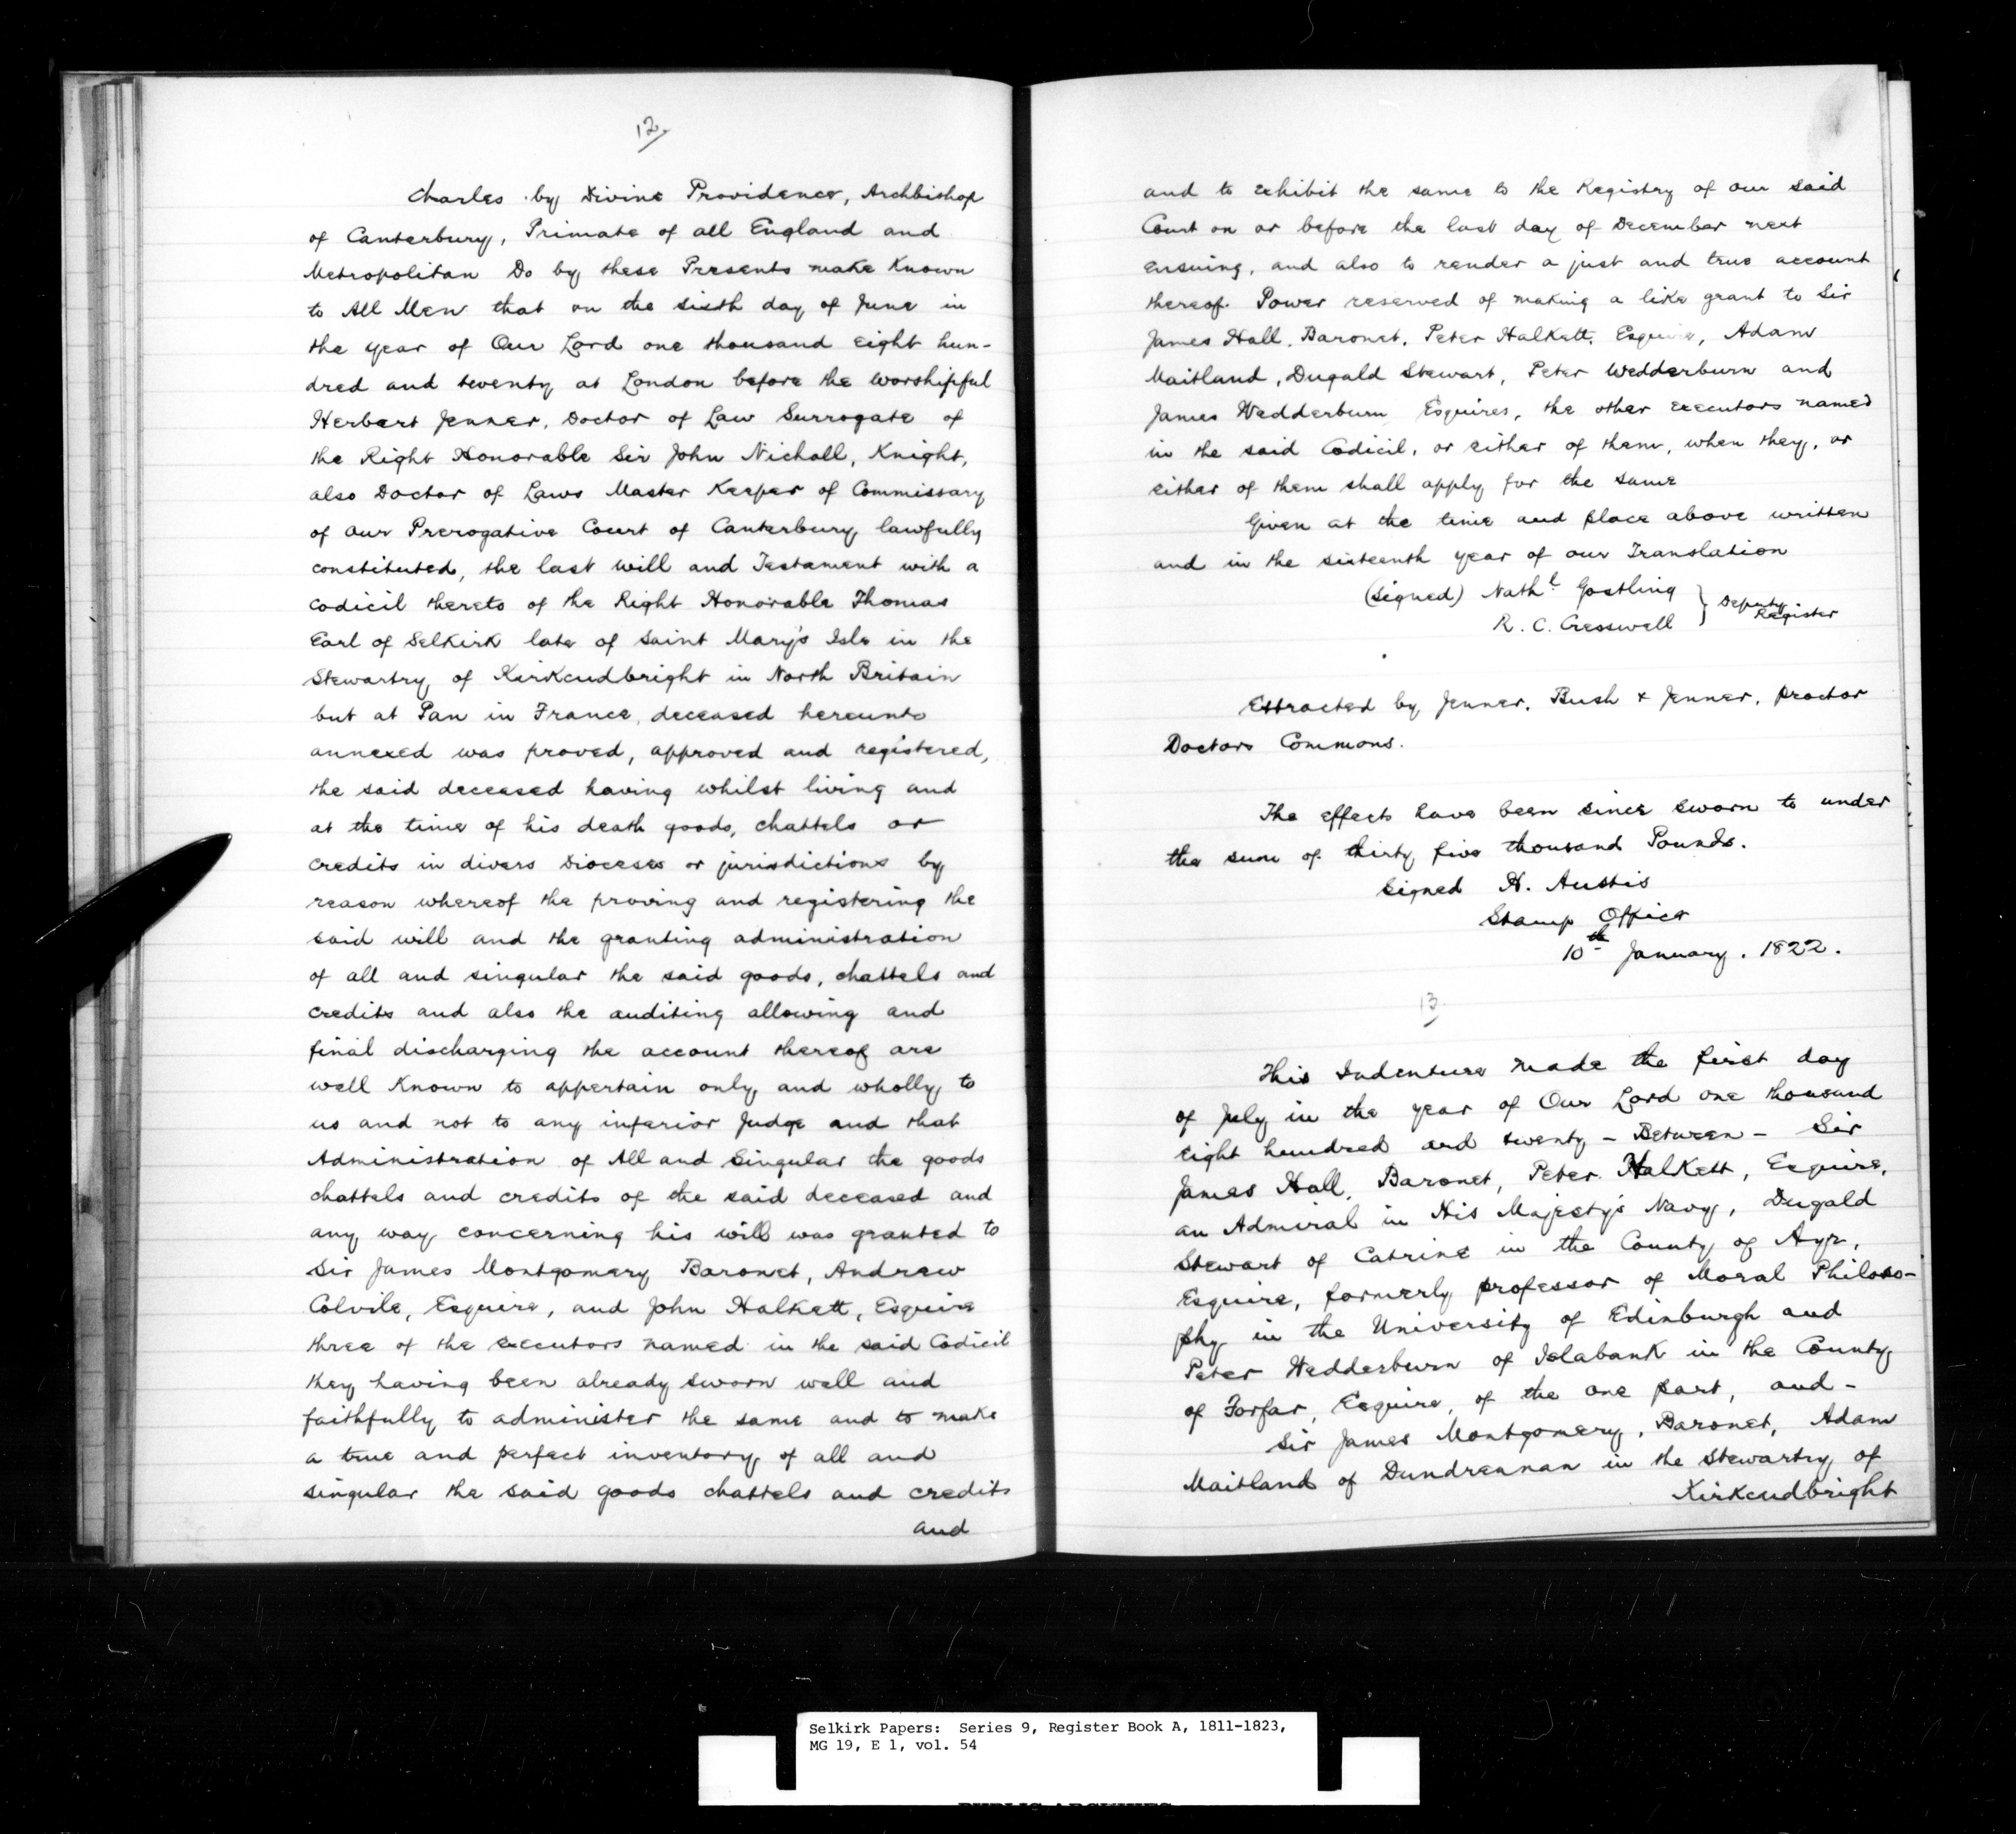 12.
Charles by Divine Providence, Archbishop
of Canterbury, Primate of all England and
Metropolitan Do by these Presents make Known
to All Men that on the sixth day of June in
the year of Our Lord one thousand eight hun-
dred and twenty at London before the Worshipful
Herbert Jenner, Doctor of Law Surrogate of
the Right Honorable Sir John Nicholl, Knight,
also Doctor of Laws Master Keeper of Commissary
of our Prerogative Court of Canterbury lawfully
constituted, the last will and Testament with a
codicil thereto of the Right Honorable Thomas
Earl of Selkirk late of Saint Mary's Isle in the
Stewartry of Kirkcudbright in North Britain
but at Pau in France, deceased hereunto
annexed was proved, approved and registered,
the said deceased having whilst living and
at the time of his death goods, chattels or
credits in divers Dioceses or jurisdictions by
reason whereof the proving and registering the
said will and the granting administration
of all and singular the said goods, chattels and
credits and also the auditing allowing and
final discharging the account thereof are
well Known to appertain only and wholly to
us and not to any inferior Judge and that
Administration of All and Singular the goods
chattels and credits of the said deceased and
any way concerning his will was granted to
Sir James Montgomery Baronet, Andrew
Colvile, Esquire, and John Halkett, Esquire
three of the executors named in the said Codicil
they having been already sworn well and
faithfully to administer the same and to make
a true and perfect inventory of all and
singular the said goods chattels and credits
and
and to exhibit the same to the Registry of our said
Court on or before the last day of December next
ensuing, and also to render a just and true account
thereof. Power reserved of making a like grant to Sir
James Hall, Baronet, Peter Halkett, Esquire, Adam
Maitland, Dugald Stewart, Peter Wedderburn and
James Wedderburn Esquires, the other executors named
in the said Codicil, or either of them, when they, or
either of them shall apply for the same
Given at the time and place above written
and in the sixteenth year of our Translation
(signed) Nathl Gostling
R. C. Cresswell } Deputy Register
Extracted by Jenner, Bush & Jenner, Proctor
Doctors Commons.
The effects have been since sworn to under
the sum of thirty five thousand Pounds.
Signed H. Austis
Stamp Office
10th January. 1822.
13
This Indenture made the first day
of July in the year of Our Lord one thousand
eight hundred and twenty - Between - Sir
James Hall, Baronet, Peter Halkett, Esquire,
an Admiral in His Majesty's Navy, Dugald
Stewart of Catrine in the County of Ayr,
Esquire, formerly professor of Moral Philoso-
phy in the University of Edinburgh and
Peter Wedderburn of Islabank in the County
of Forfar, Esquire, of the one part, and -
Sir James Montgomery, Baronet, Adam
Maitland of Dundrennan in the Stewartry of
Kirkcudbright
Selkirk Papers: Series 9, Register Book A, 1811-1823,
MG 19, E 1, vol. 54
PUBLIC ARCHIVES